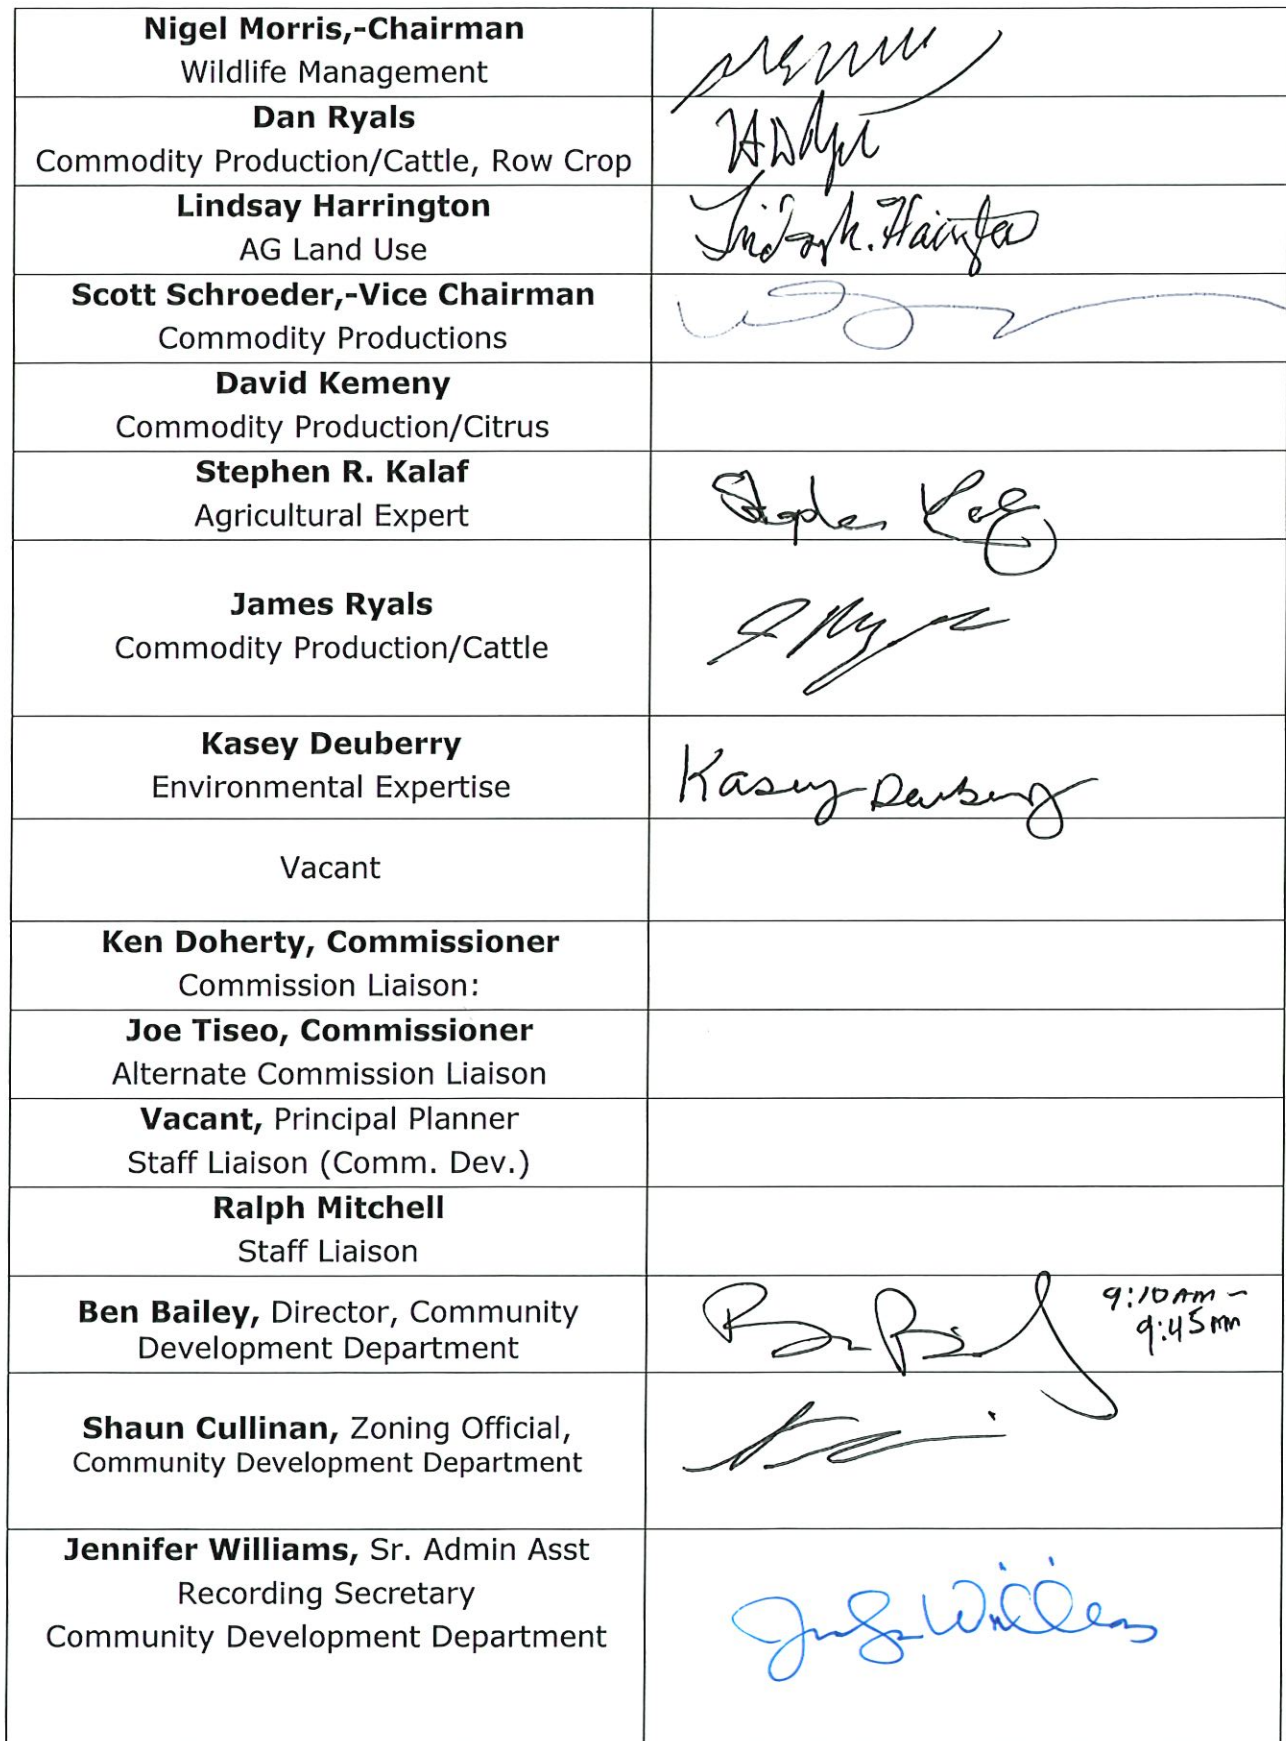 Nigel Morris,-Chairman
Wildlife Management
Dan Ryals
Commodity Production/Cattle, Row Crop
Lindsay Harrington
AG Land Use
Scott Schroeder,-Vice Chairman
Commodity Productions
David Kemeny
Commodity Production/Citrus
Stephen R. Kalaf
Agricultural Expert
Stephen
James Ryals
Commodity Production/Cattle
Kasey Deuberry
Environmental Expertise
Kasey Deuberry
Vacant
Ken Doherty, Commissioner
Commission Liaison:
Joe Tiseo, Commissioner
Alternate Commission Liaison
Vacant, Principal Planner
Staff Liaison (Comm. Dev.)
Ralph Mitchell
Staff Liaison
Ben Bailey, Director, Community
Development Department
9:10 AM -
9:45 AM
Shaun Cullinan, Zoning Official,
Community Development Department
Jennifer Williams, Sr. Admin Asst
Recording Secretary
Community Development Department
Williams